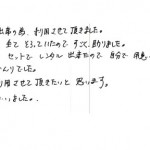 出産の為、利用させて頂きました。
全てそろっていたので すごく、助かりました。
セットで レンタル 出来たので 自分で 用意
んりでした。
利用させて頂きたいと 思います。
いました。